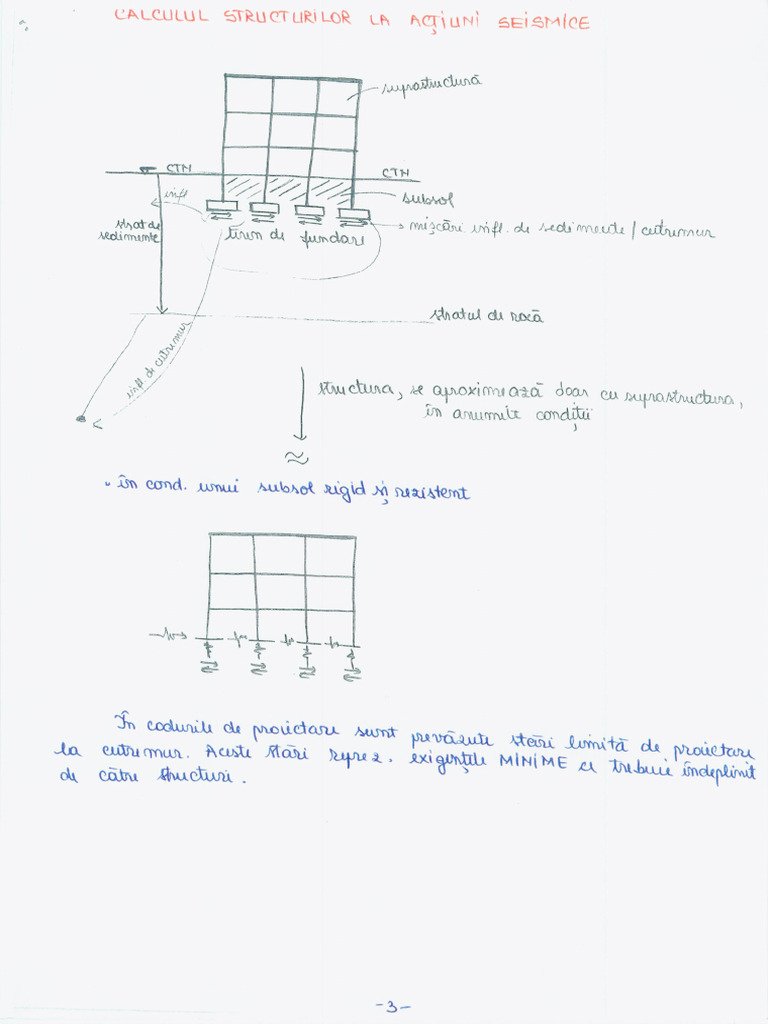 CALCULUL STRUCTURILOR LA ACȚIUNI SEISMICE
suprastructură
CTN
CTN
infl.
subsol
strat de
sedimente
teren de fundare
mișcări infl. de sedimente / cutremur
stratul de rocă
infl. de cutremur
structura, se aproximează doar cu suprastructura,
în anumite condiții
≈
• în cond. unui subsol rigid și rezistent
În codurile de proiectare sunt prevăzute stări limită de proiectare
la cutremur. Aceste stări reprez. exigențele MINIME ce trebuie îndeplinit
de către structuri.
-3-